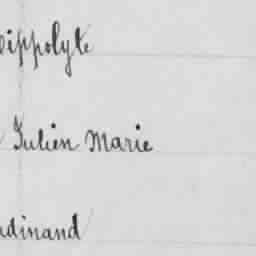 ippolyte
Julien Marie
dinand